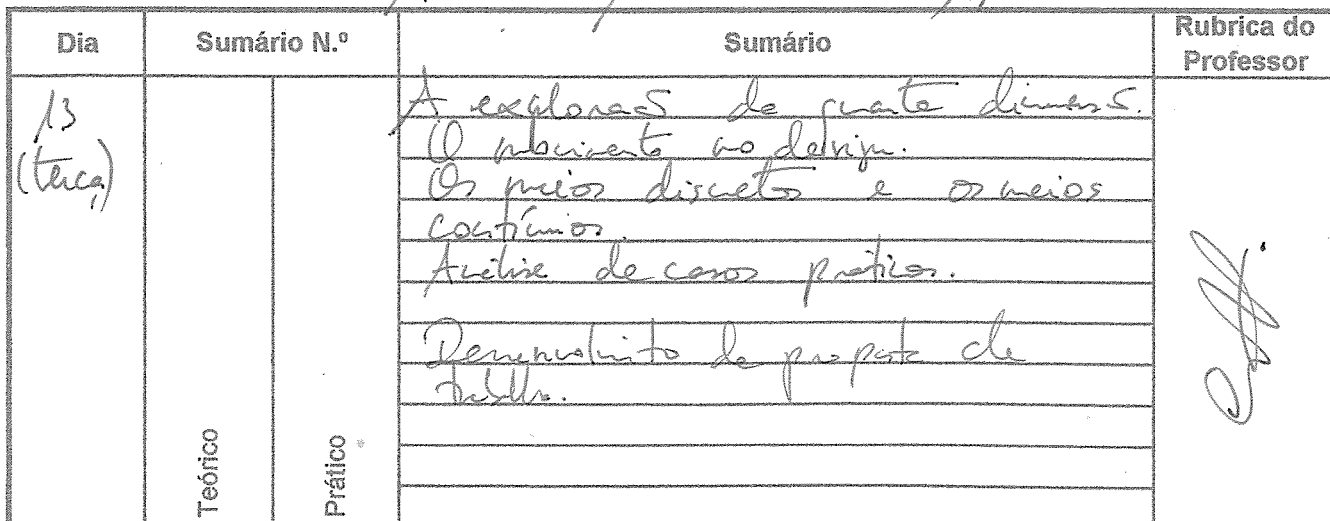 Dia Sumário N.º Sumário Rubrica do Professor
13
(terça)
A exploração da quarta dimensão.
O movimento no design.
Os meios discretos e os meios
contínuos.
Análise de casos práticos.
Desenvolvimento da proposta de
trabalho.
Teórico
Prático